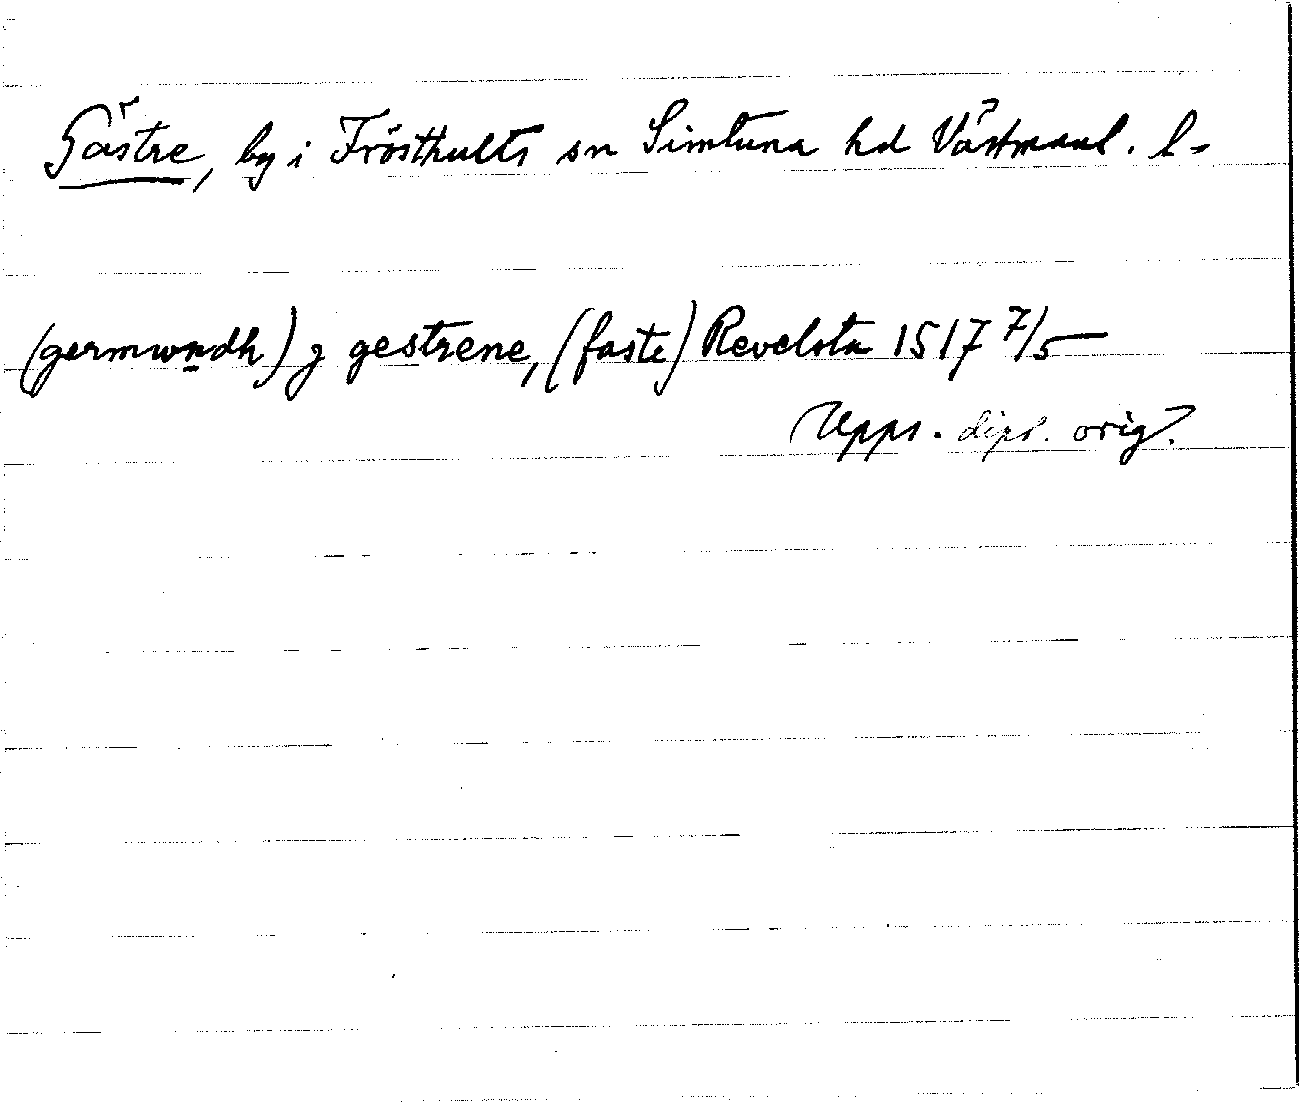 Gästre, by i Frösthults sn Simtuna hd Västmanl. l-
(germwndh) j gestrene, (faste) Revelsta 1517 7/5
Upps. dipl. orig.